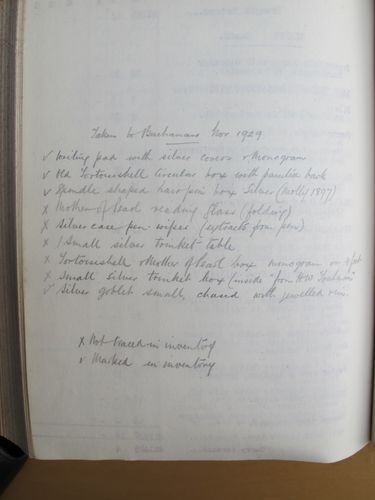 Taken to Buchanans Nov 1929
✓ Writing pad with silver covers & Monogram
✓ Old Tortoiseshell circular box with back
✓ Spindle shaped hair pin box Silver (Mollis 1897)
x Mother of Pearl reading Glass (folding)
x Silver case pen-wiper (extracts from pen)
x 1 Small silver trinket-table
x Tortoiseshell & Mother of Pearl box monogram on
x Small silver trinket box (inside "from HW
✓ Silver goblet small, chased with jewelled rim.
x Not traced in inventory
✓ Marked in inventory